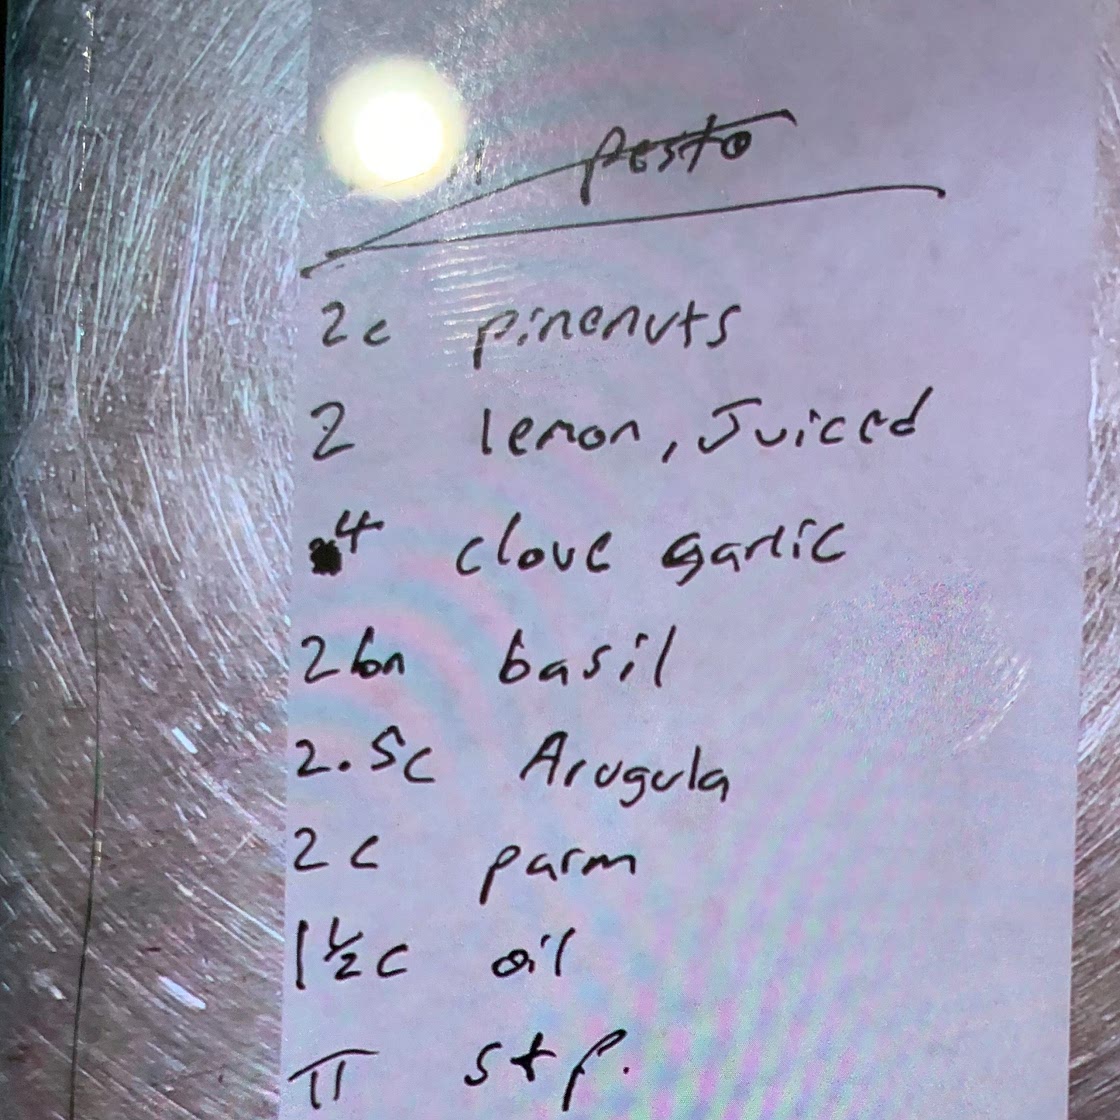 pesto
2c pinenuts
2 lemon, Juiced
4 clove garlic
2bn basil
2.5c Arugula
2c parm
1½c oil
TT s+p.